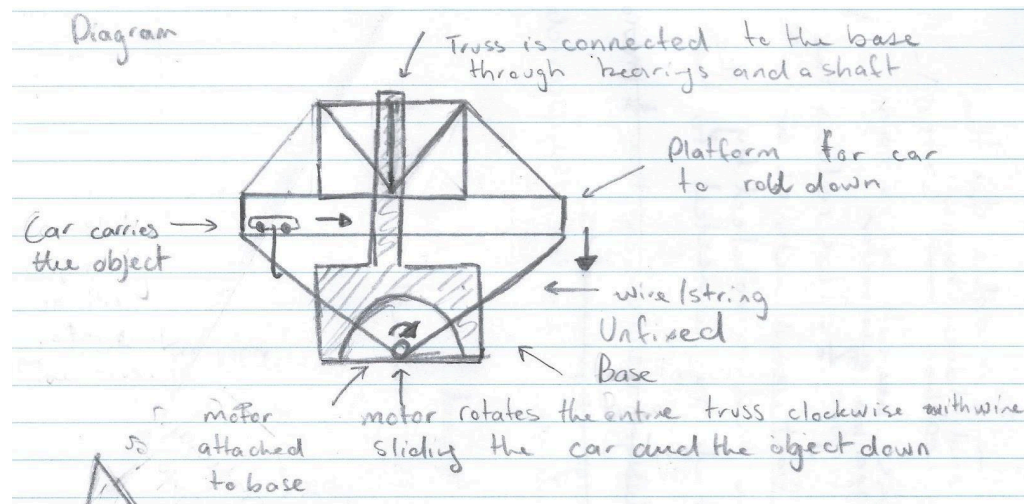 Diagram
Truss is connected to the base
through bearings and a shaft
Platform for car
to roll down
Car carries
the object
wire/string
Unfixed
Base
motor
attached
to base
motor rotates the entire truss clockwise with wire
sliding the car and the object down